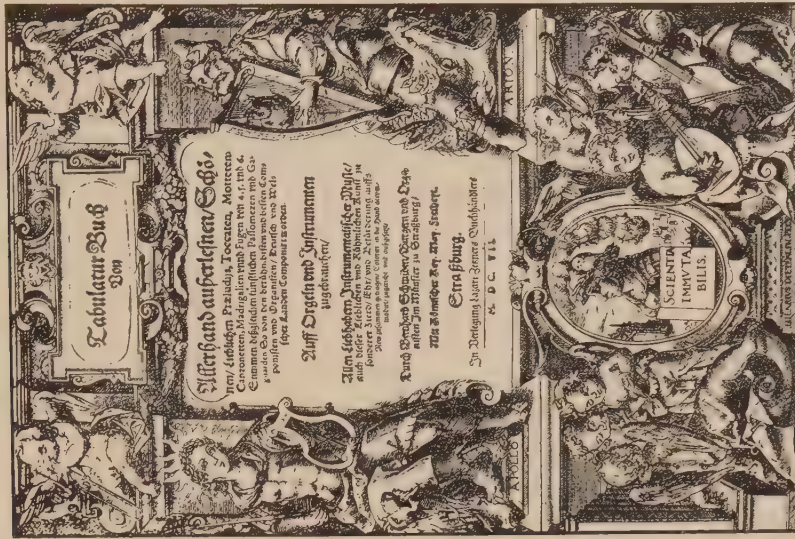 Tabulatur Buch
Von
Allerhand außerlesnen/ Schö-
nen/ Lieblichen Præludijs, Toccaten, Motteten,
Canzonetten, Madrigalien vnd Fugen von 4. 5. vnd 6.
Stimmen: deßgleichen künstlichen Passomezen vnd Ga-
gliarden So von den berühmbtesten vnd besten Com-
ponisten vnd Organisten/ Deutsch vnd Wel-
scher Landen Componirt worden.
Auff Orgeln vnd Instrumenten
zugebrauchen/
Allen Liebhabern Instrumentischer Music/
auch dieser Lieblichen vnd Rhümlichen Kunst zu
sonderer Zierd/ Ehr/ vnd Befürderung auffs
New zusammen
Durch Bernhard Schmiden/ Burgern vnd Orga-
nisten Jm Münster zu Straßburg/
Mit Römischer Key. May. Freyheit.
Straßburg.
Jn Verlegung Lazari Zetzners Buchhändlers
M DC VII
APOLLO
ARION
SCIENTIA
IMMVTA
BILIS.